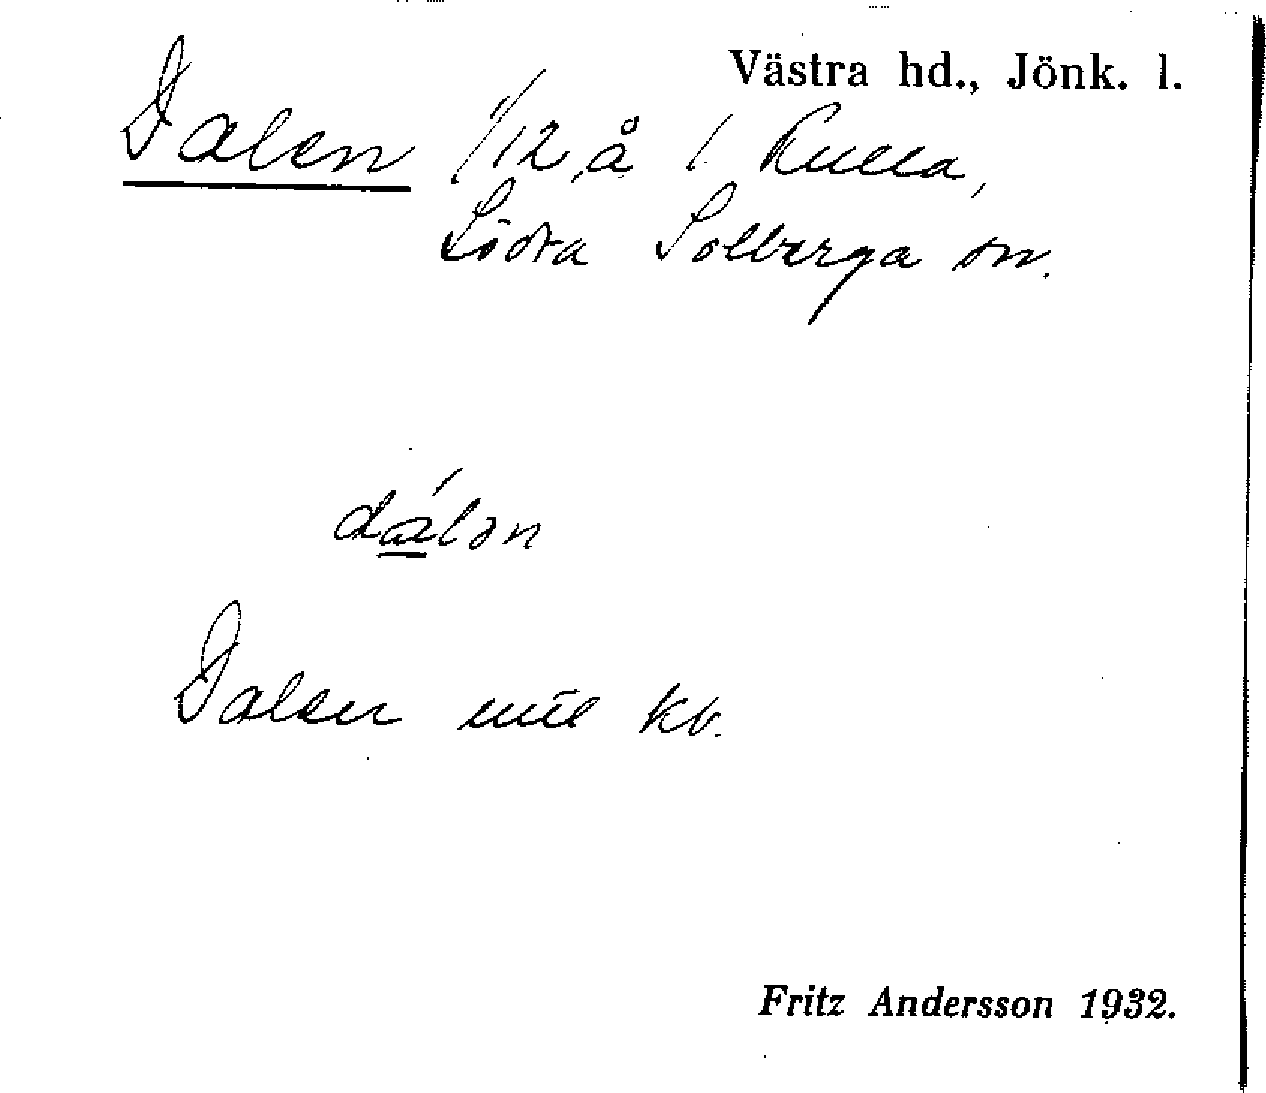 Västra hd., Jönk. l.
Dalen 1/12 å 1 Kulla,
Södra Solberga sn.
dálən
Dalen
kb.
Fritz Andersson 1932.